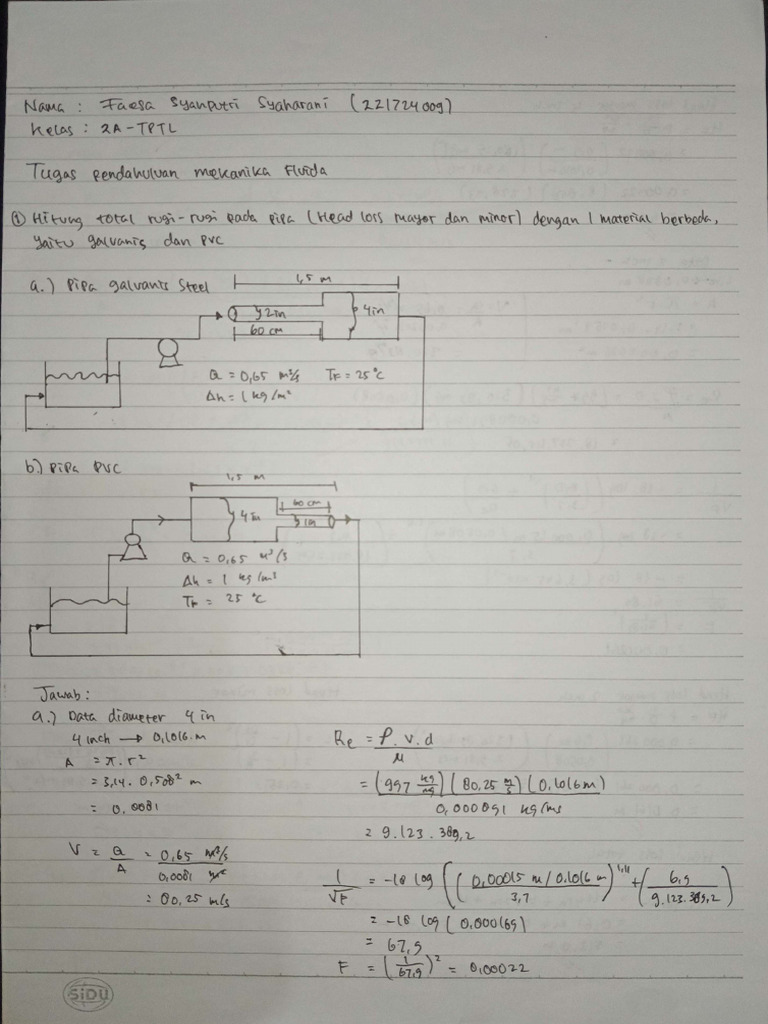 Nama : Faesa Syahputri Syaharani (221724009)
Kelas : 2A-TPTL
Tugas pendahuluan mekanika Fluida
① Hitung total rugi-rugi pada pipa (Head loss mayor dan minor) dengan 1 material berbeda,
yaitu galvanis dan PVC
a.) Pipa galvanis Steel
1,5 m
2in
4in
60 cm
Q = 0,65 m³/s TF = 25°C
Δh = 1 kg/m²
b.) Pipa PVC
1,5 m
60 cm
4in
3in
Q = 0,65 m³/s
Δh = 1 kg/m³
TF = 25 °C
Jawab :
a.) Data diameter 4 in
4 inch → 0,1016 m
A = π . r²
= 3,14 . 0,508² m
= 0,0081
V = Q/A = 0,65 m³/s / 0,0081 m²
= 80,25 m/s
Re = ρ . v . d / μ
= (997 kg/m3) (80,25 m/s) (0,1016 m) / 0,000891 kg/ms
= 9.123.389,2
1/√F = -18 log ((0,00015 m/0,1016 m / 3,7)^1,11 + (6,9 / 9.123.389,2))
= -18 log (0,000169)
= 67,9
F = (1/67,9)² = 0,00022
SiDU